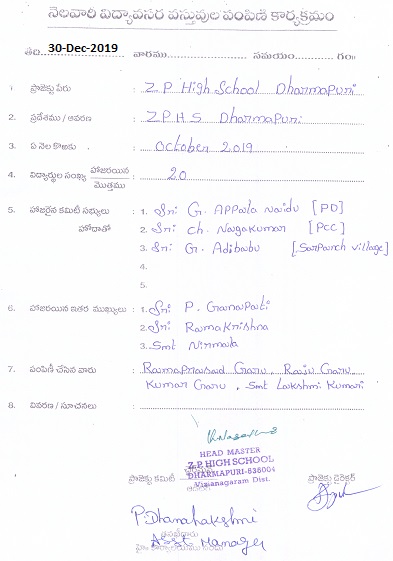 నెలవారి విద్యావసర వస్తువుల పంపిణి కార్యక్రమం
తేది 30-Dec-2019 వారము సమయం గం॥
1. ప్రాజెక్టు పేరు : Z P High School Dharmapuri
2. ప్రదేశము / ఆవరణ : Z P H S Dharmapuri
3. ఏ నెల కొఱకు : October 2019
4. విద్యార్థుల సంఖ్య హాజరయిన / మొత్తము : 20
5. హాజరైన కమిటీ సభ్యులు : 1. Sri G. Appala Naidu [PD]
హోదాతో 2. Sri ch. Nagakumar [PCC]
3. Sri G. Adibabu [Sarpanch village]
4.
5.
6. హాజరయిన ఇతర ముఖ్యులు : 1. Sri P. Ganapati
2. Sri Ramakrishna
3. Smt Nirmala
7. పంపిణీ చేసిన వారు : Ramaprasad Garu, Raju Garu
Kumar Garu, Smt Lakshmi Kumari
8. వివరణ / సూచనలు :
HEAD MASTER
Z.P. HIGH SCHOOL
ప్రాజెక్టు కమిటీ DHARMAPURI-535004 ప్రాజెక్టు డైరెక్టర్
Vizianagaram Dist.
P. Dhanalakshmi
Asst Manager